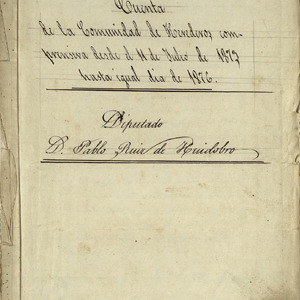 Cuenta
de la Comunidad de Herederos, com-
prensiva desde el 11 de Julio de 1872
hasta igual dia de 1876.
Diputado
D. Pablo Ruiz de Huidobro